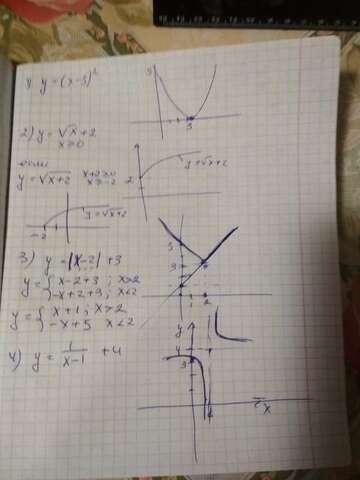 1) y = (x-3)²
3
2) y = √x + 2
x ≥ 0
если
y = √x+2 x+2≥0
x≥-2
2
y=√x+2
y=√x+2
-2
3) y = |x-2| + 3
y = { x-2+3 ; x>2
-x+2+3 ; x<2
y = { x+1 ; x>2
-x+5 x<2
5
3
1 2
4) y = 1/(x-1) + 4
y
4
3
x